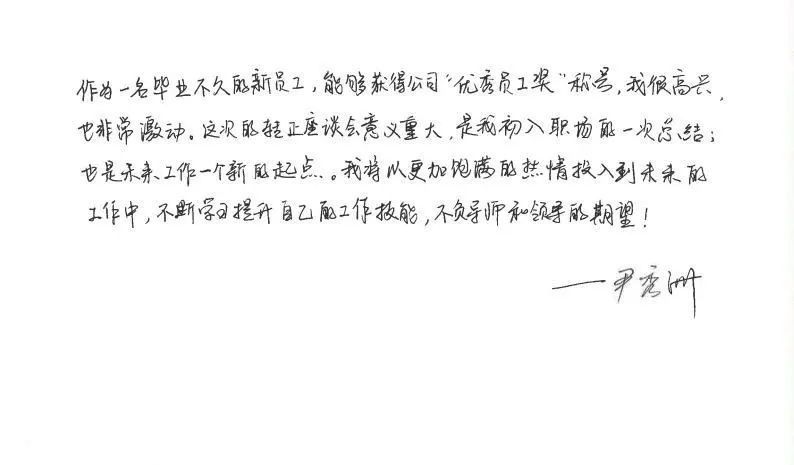 作为一名毕业不久的新员工，能够获得公司“优秀员工奖”称号，我很高兴，
也非常激动。这次的转正座谈会意义重大，是我初入职场的一次总结；
也是未来工作一个新的起点。我将以更加饱满的热情投入到未来的
工作中，不断学习提升自己的工作技能，不负导师和领导的期望！
——尹秀洲